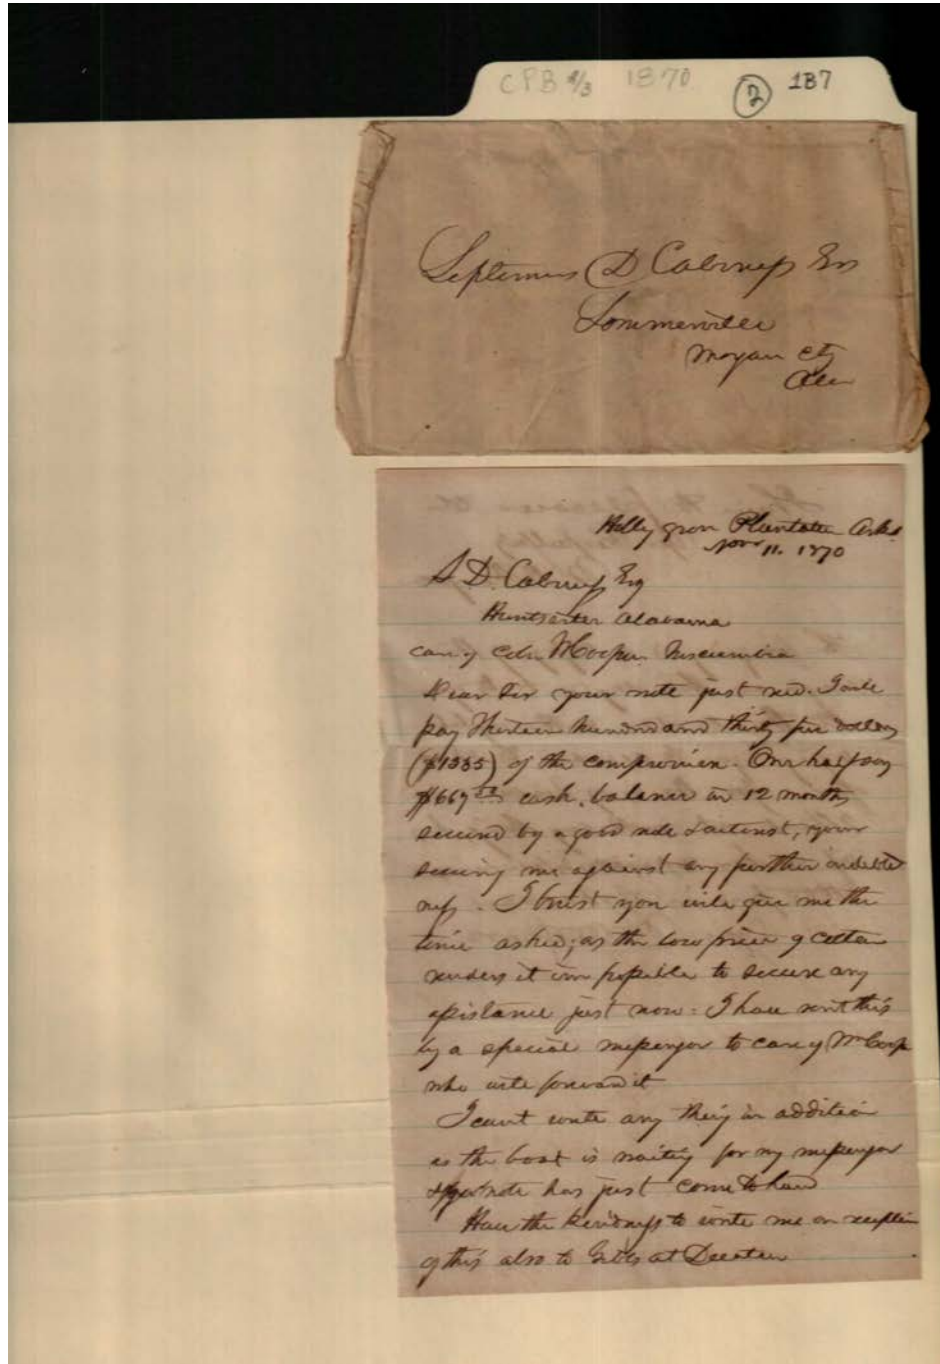 CPB 2/3 1870 2 1B7
Septimus D Cabiness Esq
Sommerville
Morgan Cty
Ala
Holly grove Plantation Arks
Novr 11. 1870
S D. Cabiness Esq
Huntsville Alabama
care of Col. Wm Cooper Tuscumbia
Dear Sir your note just recd. I will
pay Thirteen hundred and thirty five dollars
($1335) of the compromise. One half say
$667 50 cash, balance in 12 months
secured by a good note & interest, your
securing me against any further indebted
ness. I trust you will give me the
time asked, as the low price of cotton
renders it impossible to secure any
assistance just now. I have sent this
by a special messenger to care of Wm Coop
who will forward it
I cant write any thing in addition
as the boat is waiting for my messenger
& your note has just come to hand
Have the kindness to write me on reception
of this also to at Decatur